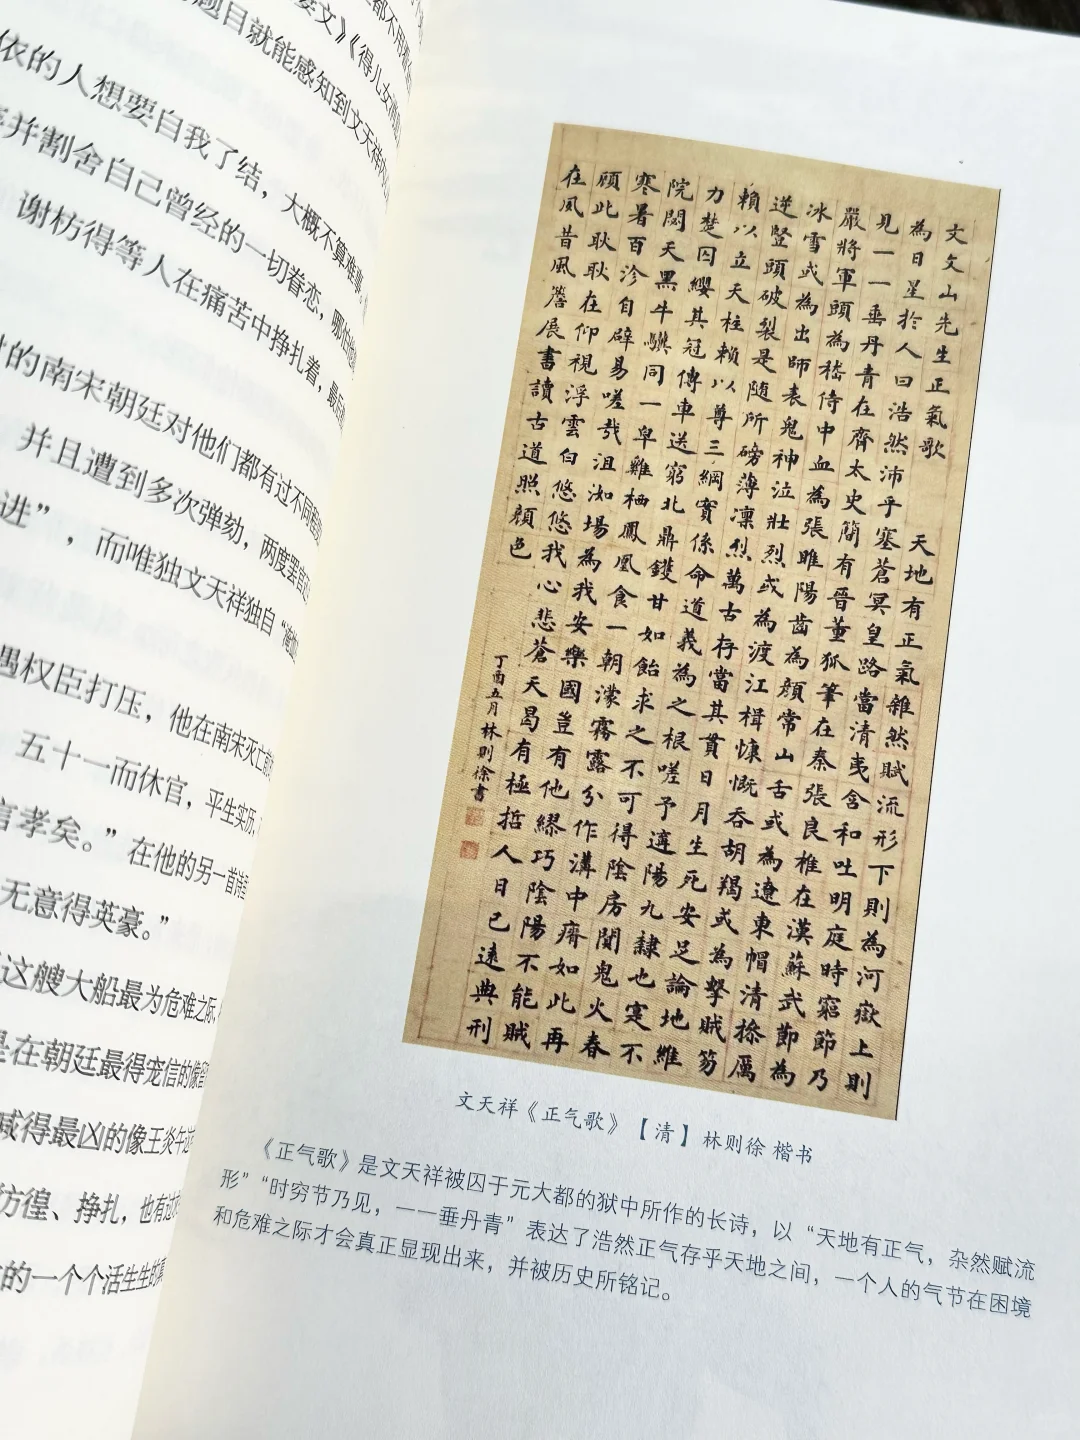 要文》《得儿女消
题目就能感知到文天祥
依的人想要自我了结，大概不算难事。
并割舍自己曾经的一切眷恋，哪怕
谢枋得等人在痛苦中挣扎着，最后
的南宋朝廷对他们都有过不同
并且遭到多次弹劾，两度罢官
进”，而唯独文天祥独自“
遇权臣打压，他在南宋灭亡前
五十一而休官，平生实历，
言孝矣。”在他的另一首
无意得英豪。”
这艘大船最为危难之际，
是在朝廷最得宠信的像留
喊得最凶的像王炎午
彷徨、挣扎，也有过
的一个个活生生的
文文山先生正氣歌 天地有正氣雜然賦流形下則為河嶽上則
為日星於人曰浩然沛乎塞蒼冥皇路當清夷含和吐明庭時窮節乃
見一一垂丹青在齊太史簡有晉董狐筆在秦張良椎在漢蘇武節為
嚴將軍頭為嵇侍中血為張睢陽齒為顏常山舌或為遼東帽清操厲
冰雪或為出師表鬼神泣壯烈或為渡江楫慷慨吞胡羯或為擊賊笏
逆豎頭破裂是隨所磅薄凜烈萬古存當其貫日月生死安足論地維
賴以立天柱賴以尊三綱實係命道義為之根嗟予遘陽九隸也寔不
力楚囚纓其冠傳車送窮北鼎鑊甘如飴求之不可得陰房闃鬼火春
院閟天黑牛驥同一皁雞栖鳳凰食一朝濛霧露分作溝中瘠如此再
寒暑百沴自辟易嗟哉沮洳場為我安樂國豈有他繆巧陰陽不能賊
顧此耿耿在仰視浮雲白悠悠我心悲蒼天曷有極哲人日已遠典刑
在夙昔風簷展書讀古道照顏色
丁酉五月林則徐書
文天祥《正气歌》【清】林则徐 楷书
《正气歌》是文天祥被囚于元大都的狱中所作的长诗，以“天地有正气，杂然赋流
形”“时穷节乃见，一一垂丹青”表达了浩然正气存乎天地之间，一个人的气节在困境
和危难之际才会真正显现出来，并被历史所铭记。